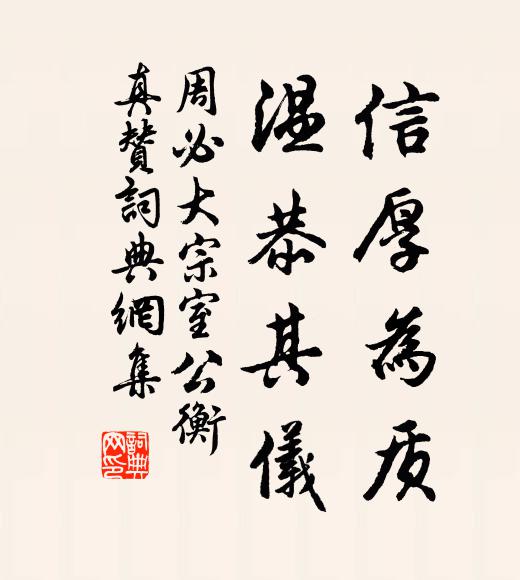 信厚為质
温恭其儀
周必大宗室公衡
真贊詞典網集
詞典网印